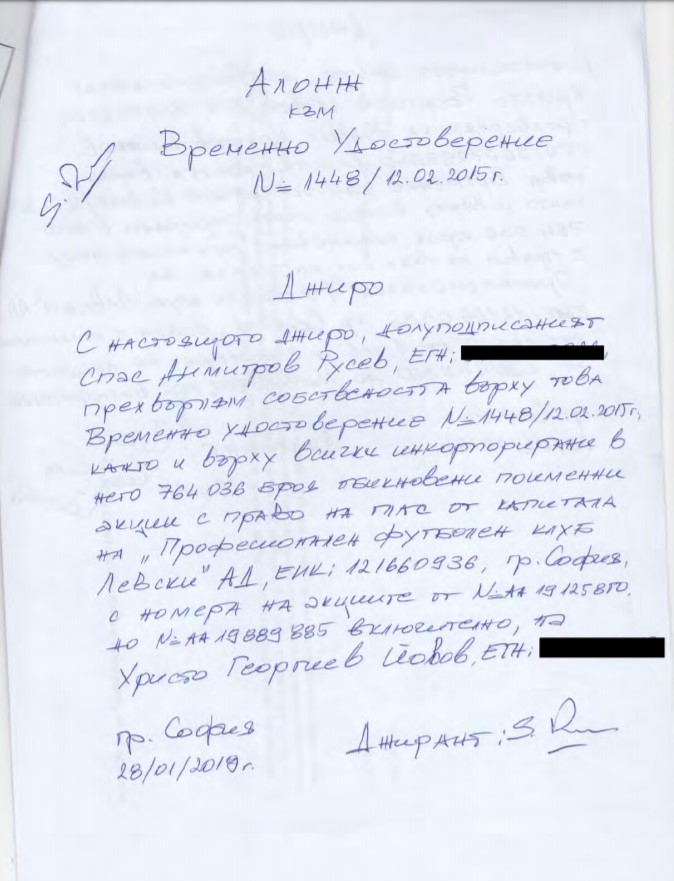 Алонж
към
Временно Удостоверение
№ 1448/12.02.2015г.
Джиро
С настоящото джиро, долуподписаният
Спас Димитров Русев, ЕГН:
прехвърлям собствеността върху това
Временно удостоверение № 1448/12.02.2015г.,
както и върху всички инкорпорирани в
него 764 036 броя обикновени поименни
акции с право на глас от капитала
на „Професионален футболен клуб
Левски" АД, ЕИК: 121660936, гр. София,
с номера на акциите от № АА 19125850.
до № АА 19889885 включително, на
Христо Георгиев Йовов, ЕГН:
гр. София
28/01/2019г.
Джирант: